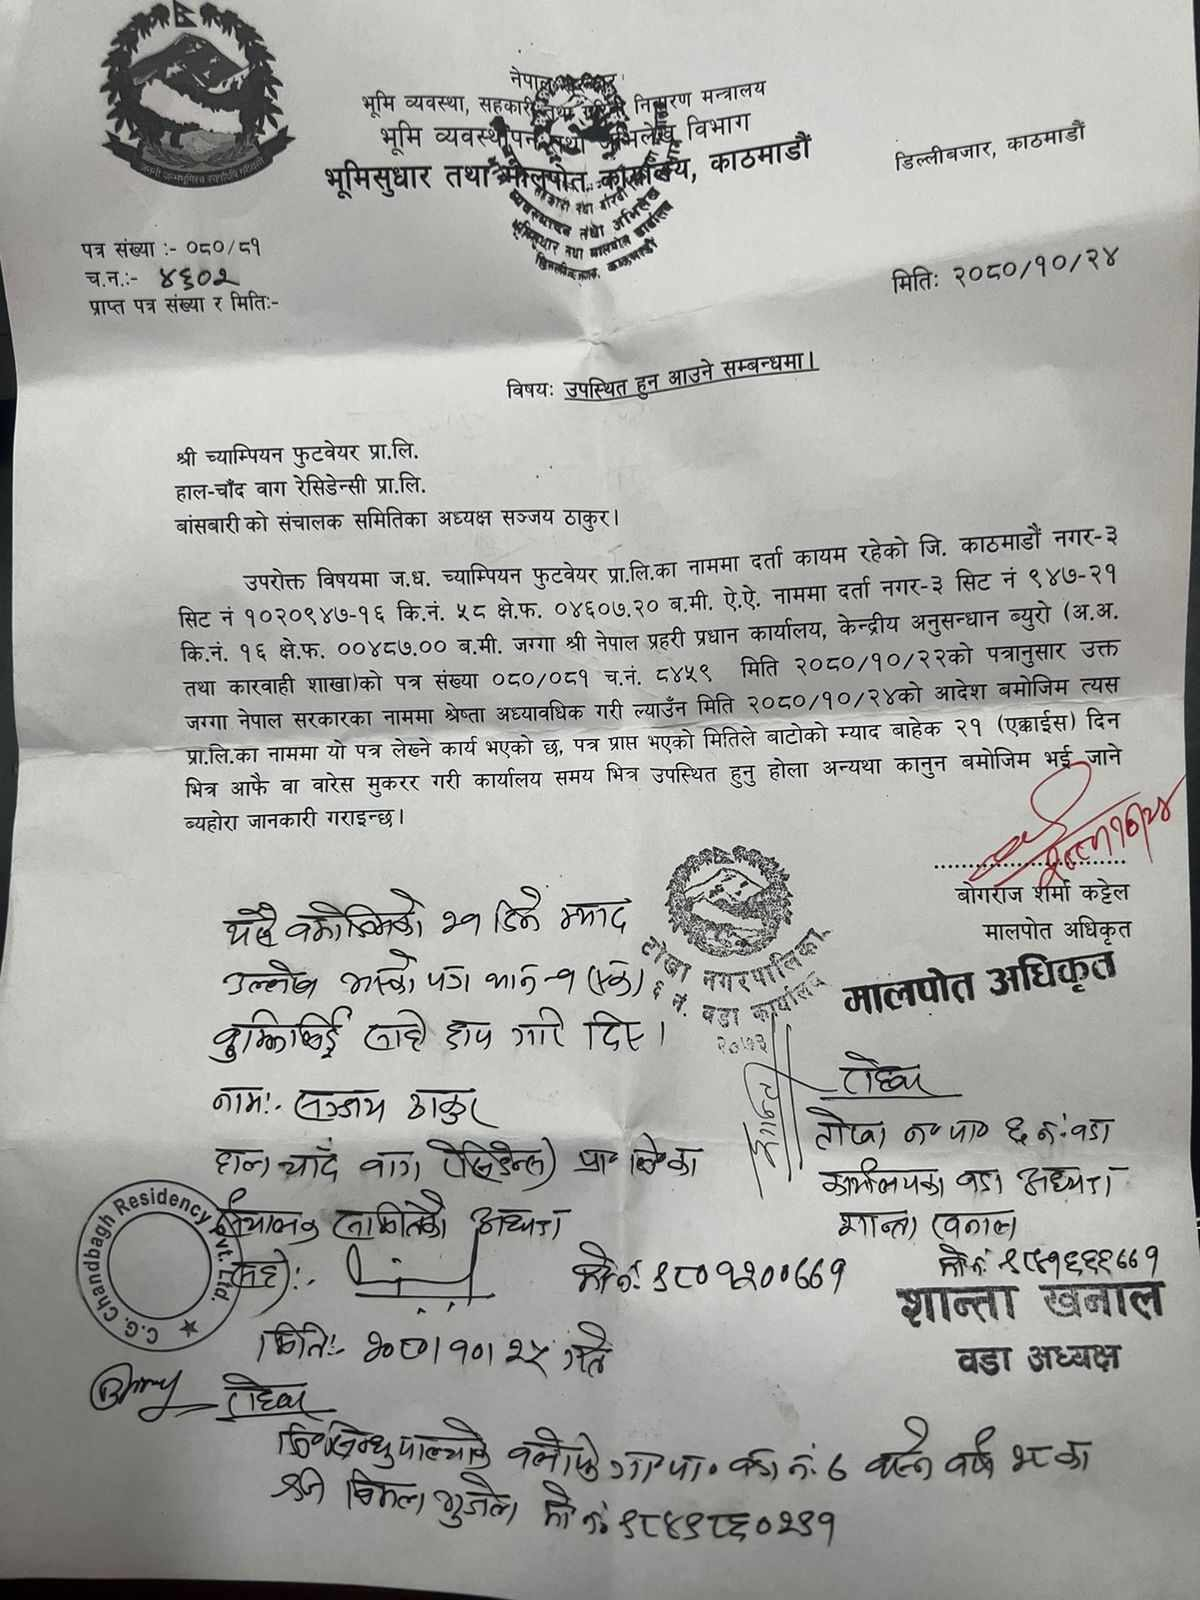 नेपाल सरकार
भूमि व्यवस्था, सहकारी तथा गरिबी निवारण मन्त्रालय
भूमि व्यवस्थापन तथा अभिलेख विभाग
भूमिसुधार तथा मालपोत कार्यालय, काठमाडौं
डिल्लीबजार, काठमाडौं
पत्र संख्या :- ०८०/८१
च.न.:- ४६०२
प्राप्त पत्र संख्या र मिति:-
मिति: २०८०/१०/२४
विषय: उपस्थित हुन आउने सम्बन्धमा।
श्री च्याम्पियन फुटवेयर प्रा.लि.
हाल-चाँद वाग रेसिडेन्सी प्रा.लि.
बांसबारी को संचालक समितिका अध्यक्ष सञ्जय ठाकुर।
उपरोक्त विषयमा ज.ध. च्याम्पियन फुटवेयर प्रा.लि.का नाममा दर्ता कायम रहेको जि. काठमाडौं नगर-३
सिट नं १०२०९४७-१६ कि.नं. ५८ क्षे.फ. ०४६०७.२० ब.मी. ऐ.ऐ. नाममा दर्ता नगर-३ सिट नं ९४७-२१
कि.नं. १६ क्षे.फ. ००४८७.०० ब.मी. जग्गा श्री नेपाल प्रहरी प्रधान कार्यालय, केन्द्रीय अनुसन्धान ब्युरो (अ.अ.
तथा कारवाही शाखा)को पत्र संख्या ०८०/०८१ च.नं. ८४५९ मिति २०८०/१०/२२को पत्रानुसार उक्त
जग्गा नेपाल सरकारका नाममा श्रेष्ता अध्यावधिक गरी ल्याउँन मिति २०८०/१०/२४को आदेश बमोजिम त्यस
प्रा.लि.का नाममा यो पत्र लेख्ने कार्य भएको छ, पत्र प्राप्त भएको मितिले बाटोको म्याद बाहेक २१ (एक्काईस) दिन
भित्र आफै वा वारेस मुकरर गरी कार्यालय समय भित्र उपस्थित हुनु होला अन्यथा कानुन बमोजिम भई जाने
ब्यहोरा जानकारी गराइन्छ।
बोगराज शर्मा कट्टेल
मालपोत अधिकृत
मालपोत अधिकृत
टोखा नगरपालिका
६ नं. वडा कार्यालय
२०७३
२१ दिने म्याद
उल्लेख भएको पत्र थान-१ (एक)
बुझिलिई सही छाप गरि दिए।
नाम:- सञ्जय ठाकुर
हाल चाँद वाग रेसिडेन्सी प्रा० लि० का
संचालक समितिको अध्यक्ष
सही:-
मो.नं. ९८०१२००७७१
C.G. Chandbagh Residency Pvt. Ltd.
मिति:- २०८०।१०।२५ गते
रोहवर
टोखा न० पा० ६ नं. वडा
कार्यालयका वडा अध्यक्ष
शान्ता खनाल
मो.नं. ९८५११११७७१
शान्ता खनाल
वडा अध्यक्ष
रोहवर
जि० सिन्धुपाल्चोक गा० पा० वडा नं. ७ बस्ने वर्ष का
विमला भुजेल मो नं. ९८४९८६०२९१